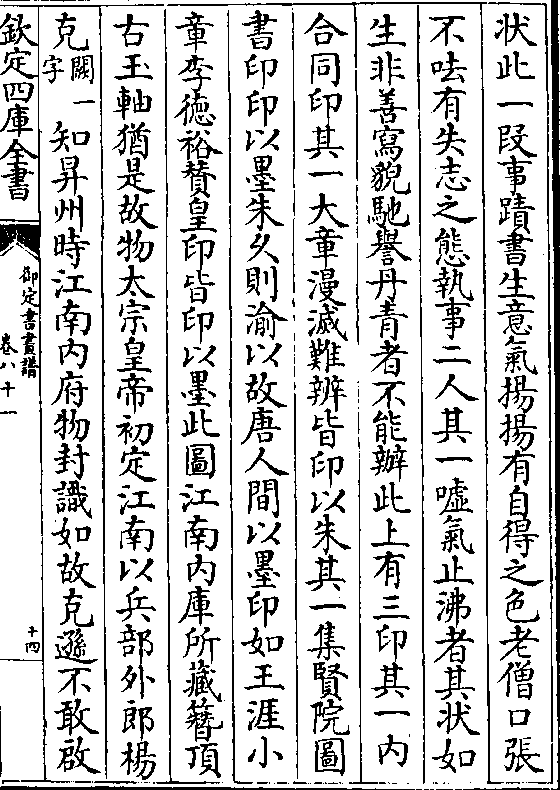 狀此一段事蹟書生意氣揚揚有自得之色老僧口張
不呿有失志之態執事二人其一噓氣止沸者其狀如
生非善寫貌馳譽丹青者不能辦此上有三印其一内
合同印其一大章漫滅難辨皆印以朱其一集賢院圖
書印印以墨朱久則渝以故唐人間以墨印如王涯小
章李德裕賛皇印皆印以墨此圖江南内庫所藏簪頂
古玉軸猶是故物太宗皇帝初定江南以兵部外郎楊
克闕一字知昇州時江南内府物封識如故克遜不敢啟
欽定四庫全書
御定書畫譜
卷八十一
十四